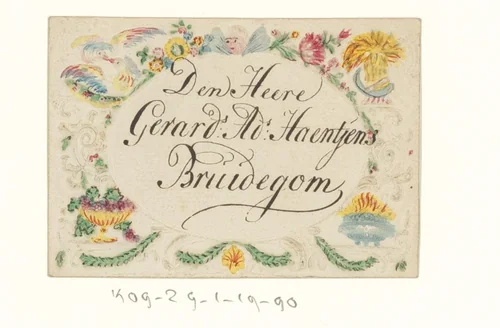 Den Heere
Gerard.s Ad.s Haentjens
Bruidegom
KOG-ZG-1-19-90